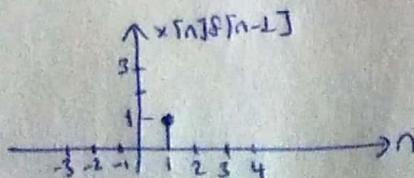 x[n]δ[n-1]
3
1
n
-3 -2 -1 1 2 3 4